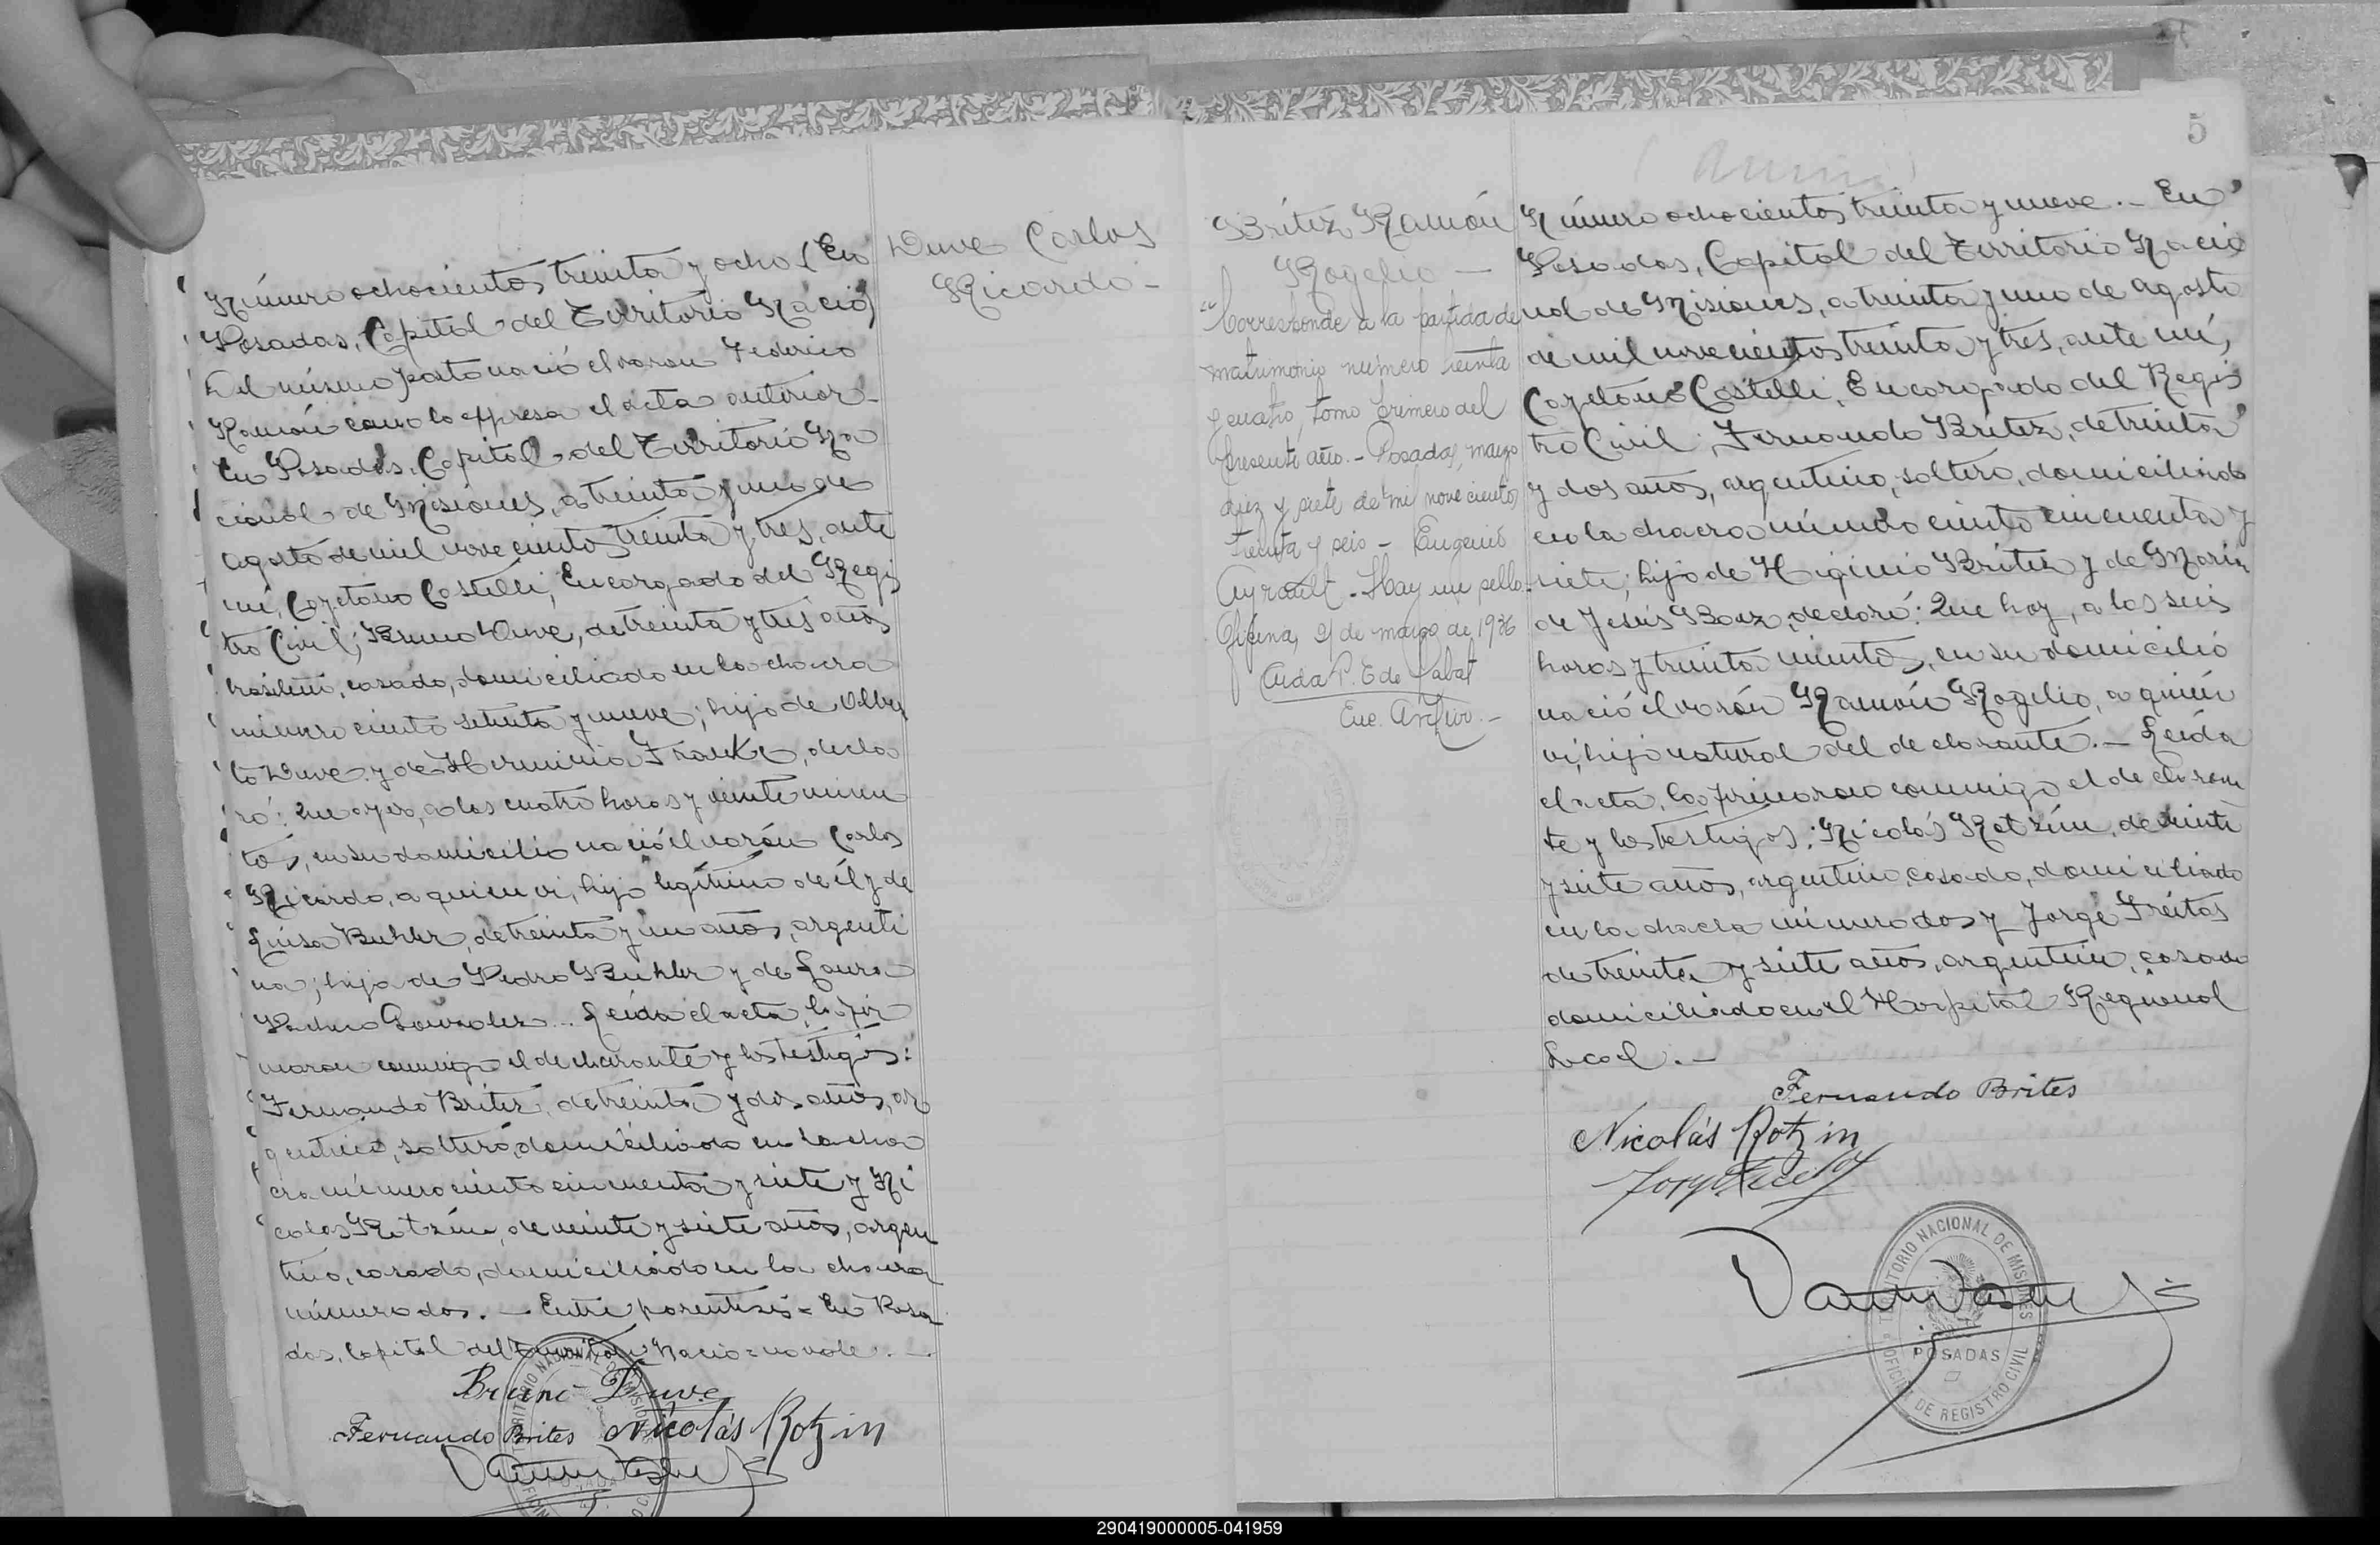 Número ochocientos treinta y ocho (En
Posadas, Capital del Territorio Nacio)
Del mismo parto nació el varón Federico
Ramón como lo expresa el acta anterior-
En Posadas, Capital del Territorio Na
cional de Misiones, a treinta y uno de
agosto de mil novecientos treinta y tres, ante
mí, Cayetano Castelli, Encargado del Regis
tro Civil; Bruno Duve, de treinta y tres años
brasileño, casado, domiciliado en la chacra
número ciento setenta y nueve; hijo de Alber
to Duve y de Herminia Franke, decla
ró: Que ayer, a las cuatro horas y veinte minu
tos, en su domicilio nació el varón Carlos
Ricardo, a quien vi, hijo legítimo de él y de
Luisa Buhler, de treinta y un años, argenti
na; hija de Pedro Buhler y de Laura
González.. Leída el acta, la fir
maron conmigo el declarante y los testigos:
Fernando Britez, de treinta y dos años, ar
gentino, soltero, domiciliado en la cha
cra número ciento cincuenta y siete y Ni
colás Rotzin, de veinte y siete años, argen
tino, casado, domiciliado en la chacra
número dos. - Entre paréntesis = En Posa
das, Capital del Territorio Nacio = no vale. -
Bruno Duve
Fernando Brites Nicolás Rotzin
Duve Carlos
Ricardo -
5
Britez Ramón
Rogelio -
"Corresponde a la partida de
matrimonio número treinta
y cuatro, tomo primero del
presente año. - Posadas, marzo
diez y siete de mil novecientos
treinta y seis - Eugenio
Ayrault - Hay un sello -
Oficina, 21 de marzo de 1936
Aida P. E de Labat
Enc. Archivo. -
Número ochocientos treinta y nueve. - En
Posadas, Capital del Territorio Nacio
nal de Misiones, a treinta y uno de agosto
de mil novecientos treinta y tres, ante mí,
Cayetano Castelli, Encargado del Regis
tro Civil; Fernando Britez, de treinta
y dos años, argentino, soltero, domiciliado
en la chacra número ciento cincuenta y
siete; hijo de Higinio Britez y de María
de Jesús Báez, declaró: Que hoy, a las seis
horas y treinta minutos, en su domicilio
nació el varón Ramón Rogelio, a quien
vi, hijo natural del declarante. - Leída
el acta, la firmaron conmigo el declaran
te y los testigos: Nicolás Rotzin, de veinte
y siete años, argentino, casado, domiciliado
en la chacra número dos y Jorge Freitas
de treinta y siete años, argentino, casado
domiciliado en el Hospital Regional
Local. -
Fernando Brites
Nicolás Rotzin
TERRITORIO NACIONAL DE MISIONES
POSADAS
OFICINA DE REGISTRO CIVIL
290419000005-041959